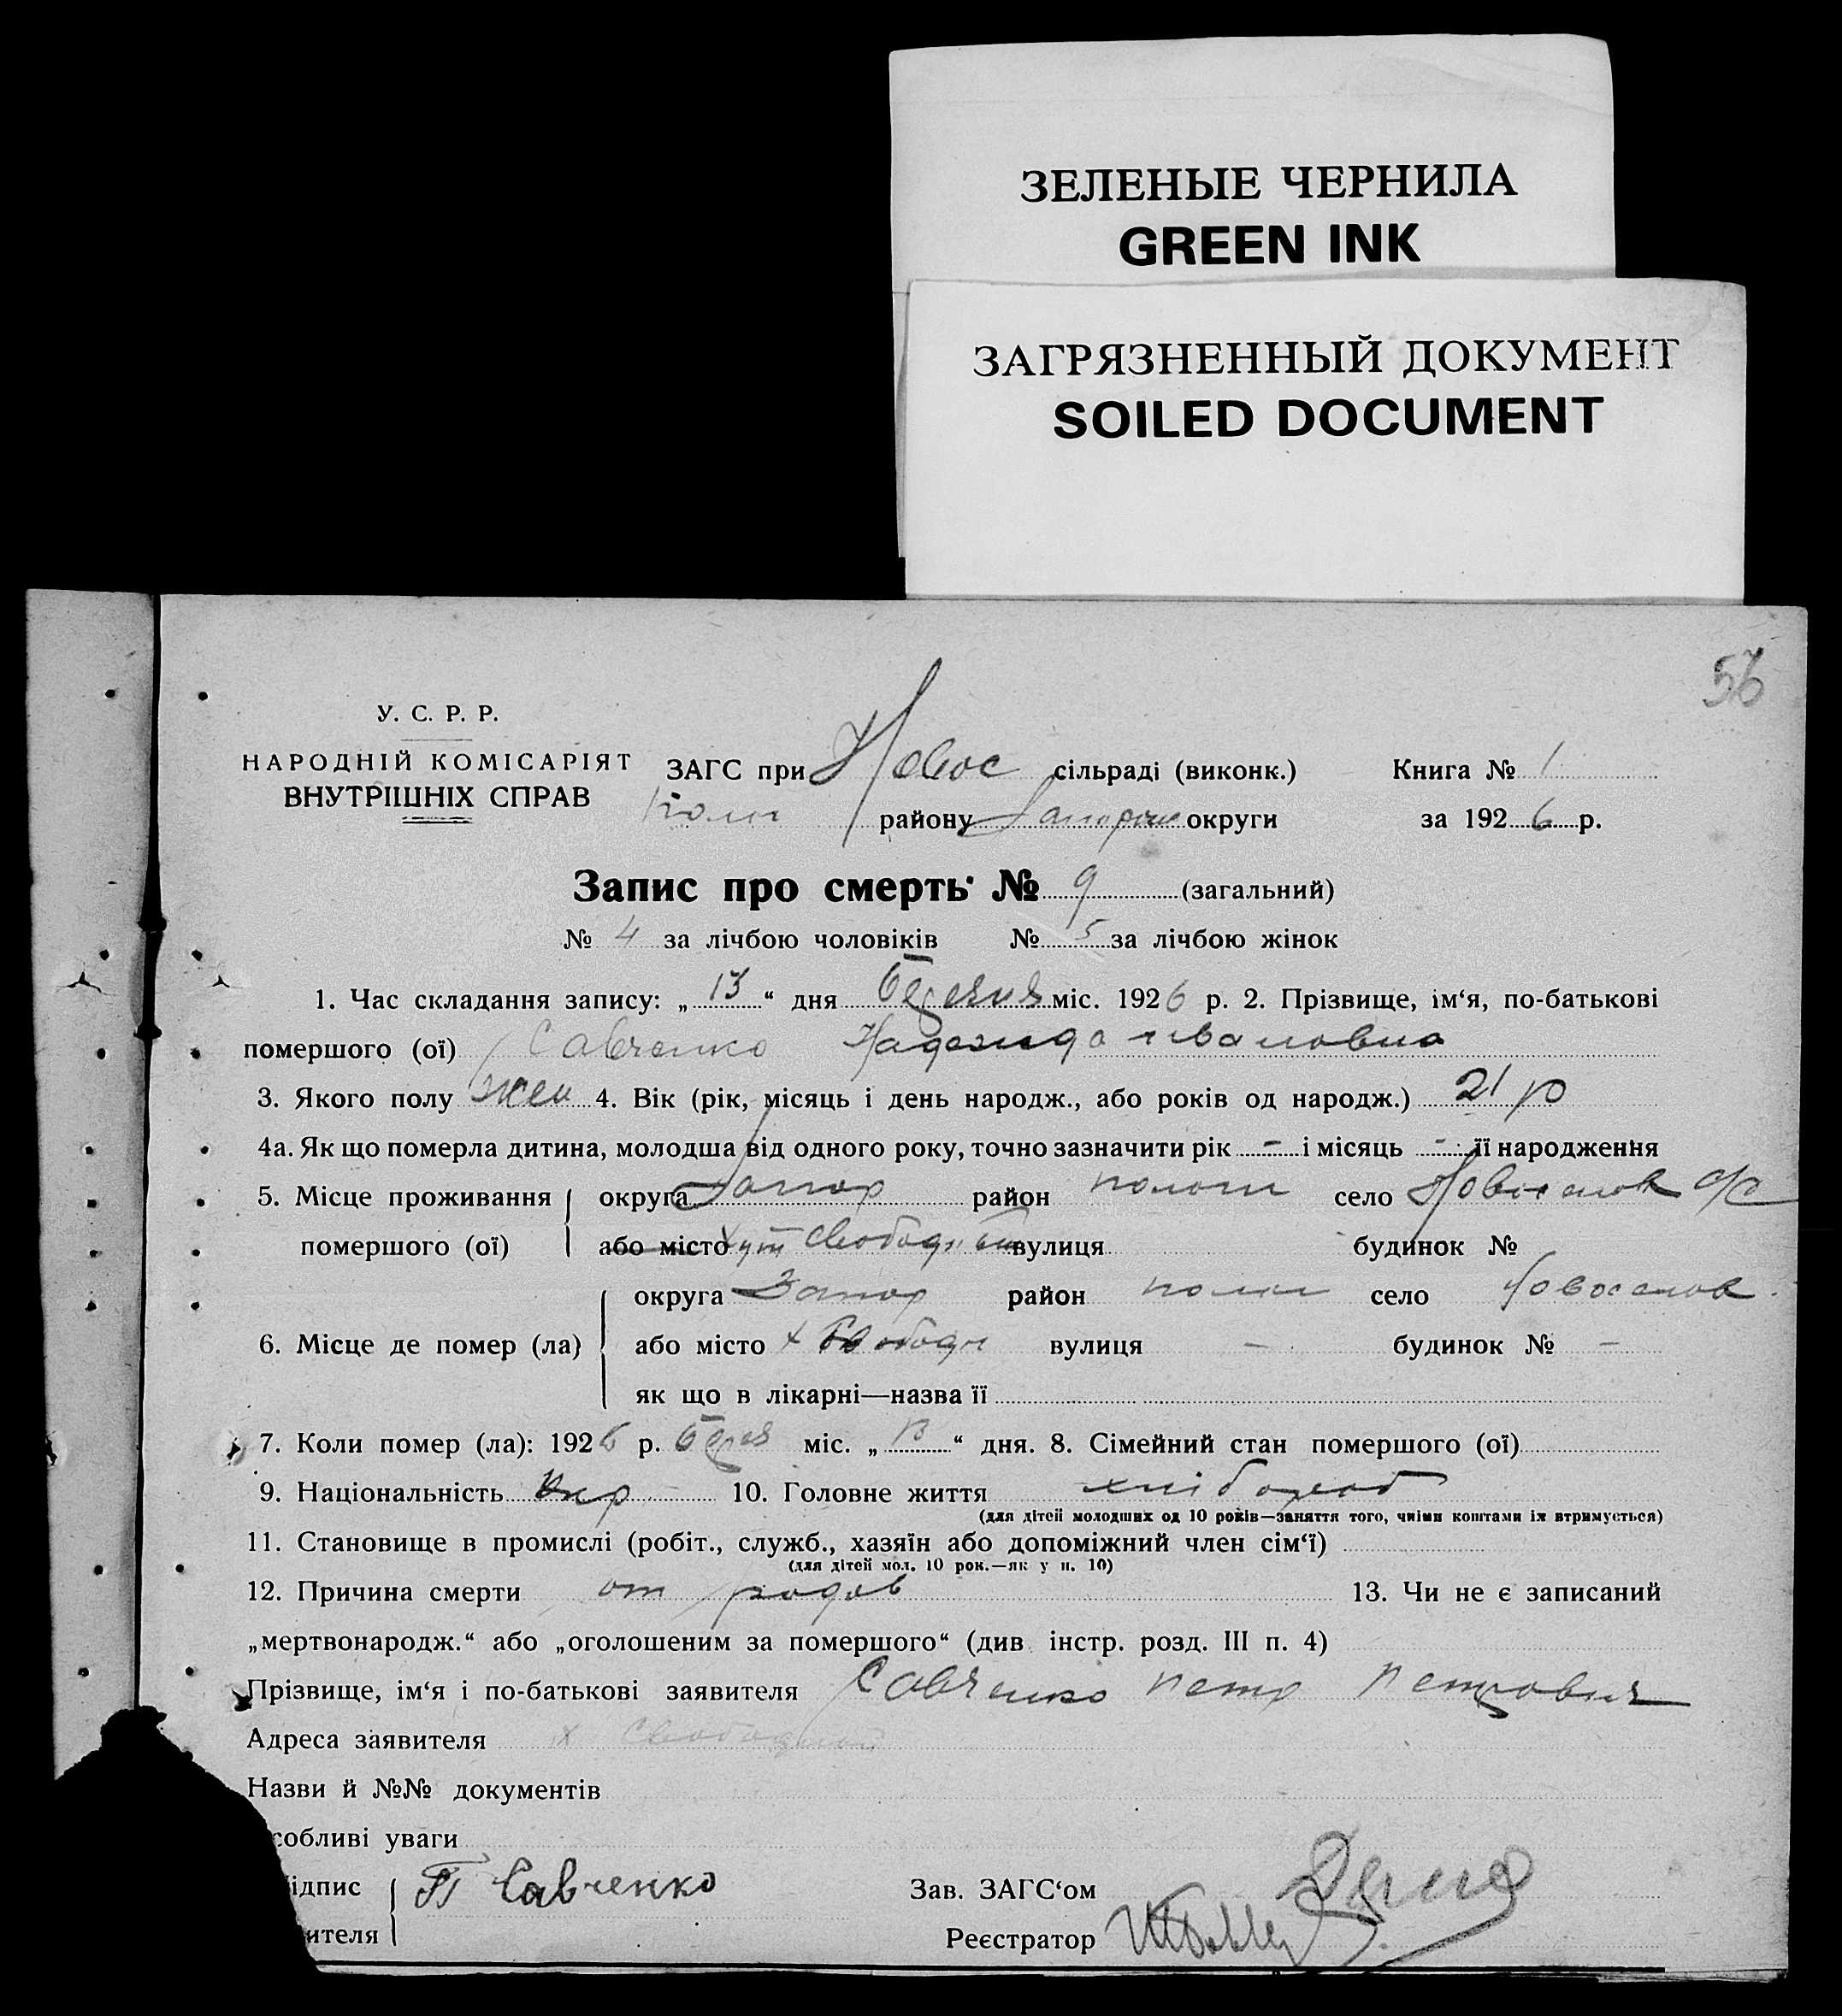 ЗЕЛЕНЫЕ ЧЕРНИЛА
GREEN INK
ЗАГРЯЗНЕННЫЙ ДОКУМЕНТ
SOILED DOCUMENT
56
У. С. Р. Р.
НАРОДНІЙ КОМІСАРІЯТ
ВНУТРІШНІХ СПРАВ
ЗАГС при Новос сільраді (виконк.) Книга № 1
району округи за 1926 р.
Запис про смерть № 9 (загальний)
№ 4 за лічбою чоловіків № 5 за лічбою жінок
1. Час складання запису: „13“ дня березня міс. 1926 р. 2. Прізвище, ім‘я, по-батькові
помершого (ої) Савченко Надежда Ивановна
3. Якого полу жен 4. Вік (рік, місяць і день народж., або років од народж.) 21 р
4а. Як що померла дитина, молодша від одного року, точно зазначити рік - і місяць - її народження
5. Місце проживання округа Запор район пологи село Новоселов с/с
помершого (ої) або місто хут Свободный вулиця будинок №
округа Запор район село Новоселов
6. Місце де помер (ла) або місто х Свободн вулиця - будинок № -
як що в лікарні—назва її
7. Коли помер (ла): 1926 р. берез міс. „13“ дня. 8. Сімейний стан помершого (ої)
9. Національність Укр 10. Головне життя хлібороб
(для дітей молодших од 10 років—заняття того, чиїми коштами їх втримується)
11. Становище в промислі (робіт., служб., хазяїн або допоміжний член сім‘ї)
(для дітей мол. 10 рок.—як у п. 10)
12. Причина смерти от родов 13. Чи не є записаний
„мертвонародж.“ або „оголошеним за помершого“ (див інстр. розд. III п. 4)
Прізвище, ім‘я і по-батькові заявителя Савченко Петр Петрович
Адреса заявителя х Свободный
Назви й №№ документів
собливі уваги
ідпис П Савченко Зав. ЗАГС‘ом
ителя Реєстратор